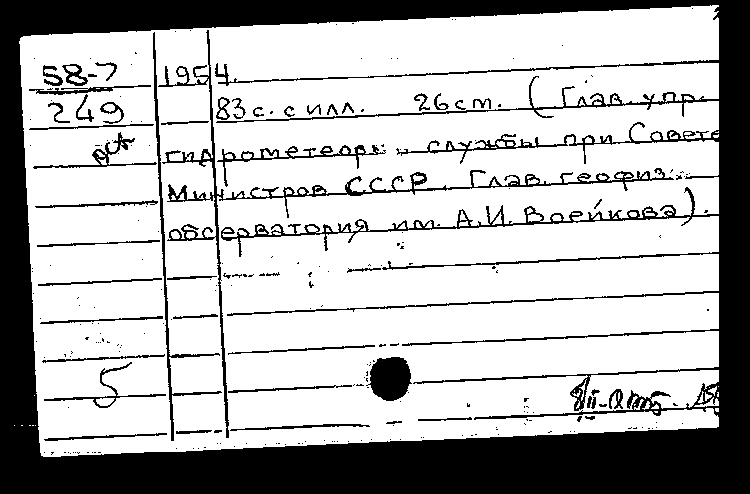 58-7 1954.
249 83 с. с илл. 26 см. (Глав. упр.
гидрометеор. службы при Совете
Министров СССР. Глав. геофиз.
обсерватория им. А.И. Воейкова).
5